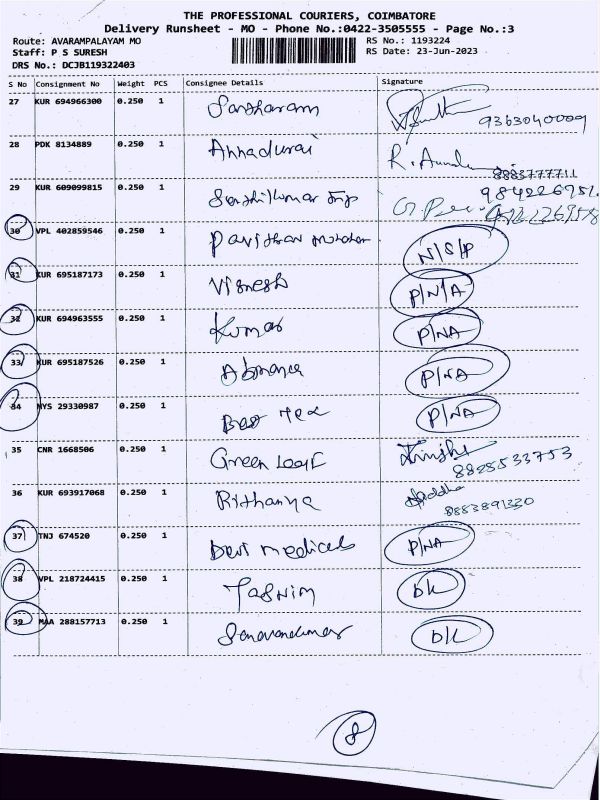 THE PROFESSIONAL COURIERS, COIMBATORE
Delivery Runsheet - MO - Phone No.:0422-3505555 - Page No.:3
Route: AVARAMPALAYAM MO RS No.: 1193224
Staff: P S SURESH RS Date: 23-Jun-2023
DRS No.: DCJB119322403
S No Consignment No Weight PCS Consignee Details Signature
27 KUR 694966300 0.250 1 9363040009
28 PDK 8134889 0.250 1 Annadurai R. 8883777711
29 KUR 609099815 0.250 1 Senthilkumar 984226951
30 VPL 402859546 0.250 1 N/S/P
31 KUR 695187173 0.250 1 Vignesh P/N/A
32 KUR 694963555 0.250 1 Kumar P/NA
33 KUR 695187526 0.250 1 P/NA
34 NYS 29330987 0.250 1 Best Tex P/NA
35 CNR 1668506 0.250 1 Green Leaf 8825533753
36 KUR 693917068 0.250 1 Rithanya 8883891330
37 TNJ 674520 0.250 1 Devi medicals P/NA
38 VPL 218724415 0.250 1 Tasnim DK
39 MAA 288157713 0.250 1 Saravanakumar D/L
8